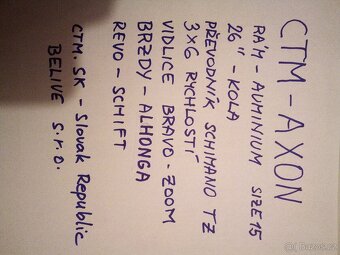 CTM - AXON
RÁM - AUMINIUM SIZE 15
26" - KOLA
PŘEVODNÍK SCHIMANO TZ
3×6 RYCHLOSTÍ
VIDLICE BRAVO - ZOOM
BRZDY - ALHONGA
REVO - SCHIFT
CTM. SK - Slovak Republic
BELIVE s.r.o.